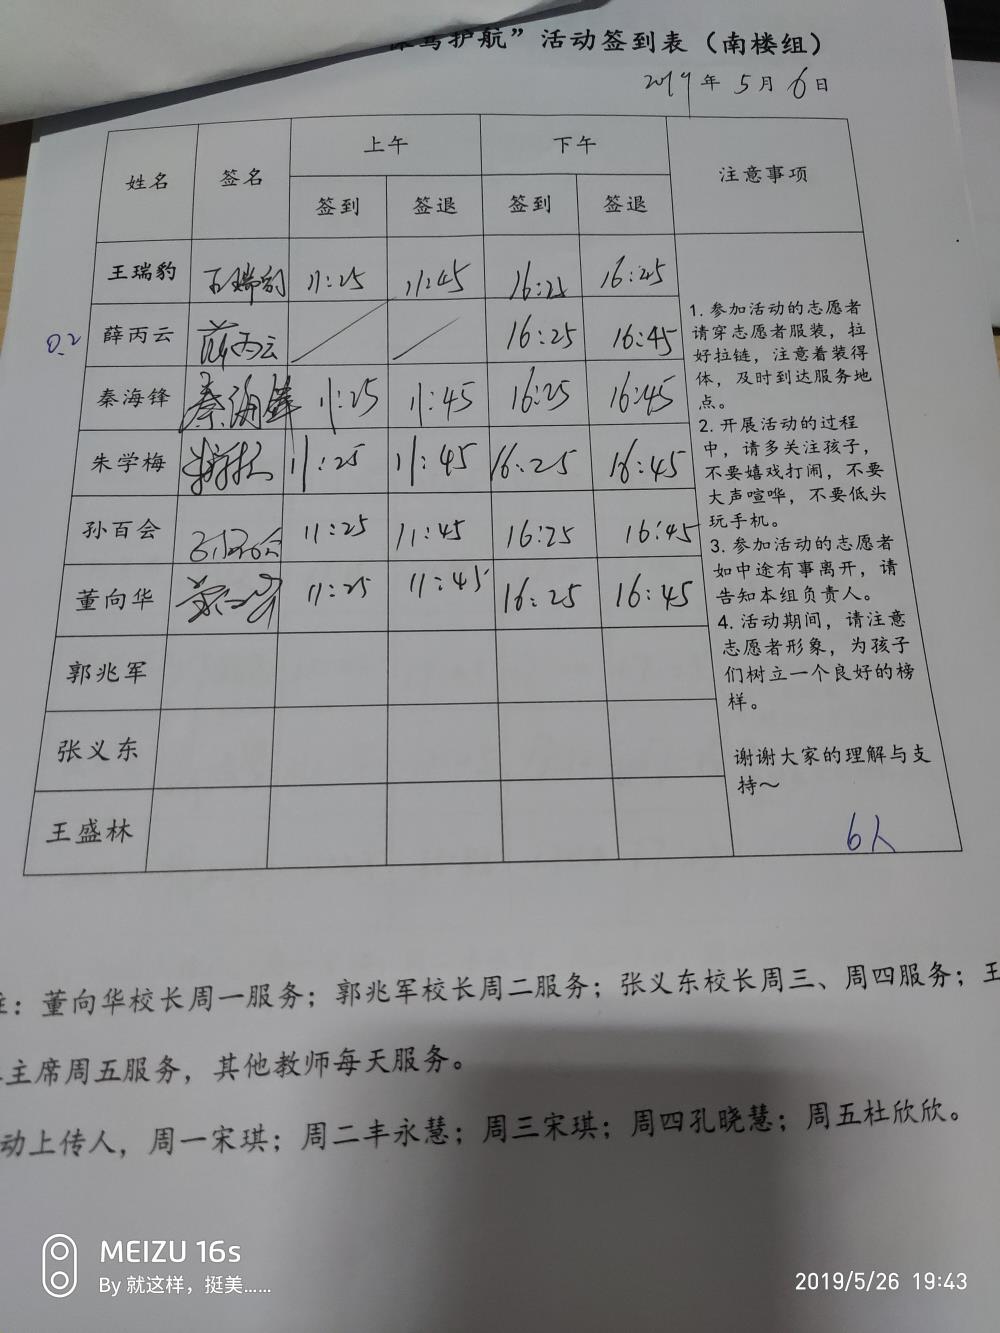 驾护航”活动签到表（南楼组）
2019年5月6日
姓名 签名 上午 下午 注意事项
签到 签退 签到 签退
王瑞豹 王瑞豹 11:25 11:45 16:25 16:45
0.2 薛丙云 薛丙云 / / 16:25 16:45
秦海锋 秦海锋 11:25 11:45 16:25 16:45
朱学梅 11:25 11:45 16:25 16:45
孙百会 孙百会 11:25 11:45 16:25 16:45
董向华 董向华 11:25 11:45 16:25 16:45
郭兆军
张义东
王盛林
1. 参加活动的志愿者
请穿志愿者服装，拉
好拉链，注意着装得
体，及时到达服务地
点。
2. 开展活动的过程
中，请多关注孩子，
不要嬉戏打闹，不要
大声喧哗，不要低头
玩手机。
3. 参加活动的志愿者
如中途有事离开，请
告知本组负责人。
4. 活动期间，请注意
志愿者形象，为孩子
们树立一个良好的榜
样。
谢谢大家的理解与支
持～
6人
：董向华校长周一服务；郭兆军校长周二服务；张义东校长周三、周四服务；王
主席周五服务，其他教师每天服务。
动上传人，周一宋琪；周二丰永慧；周三宋琪；周四孔晓慧；周五杜欣欣。
MEIZU 16s
By 就这样，挺美……
2019/5/26 19:43